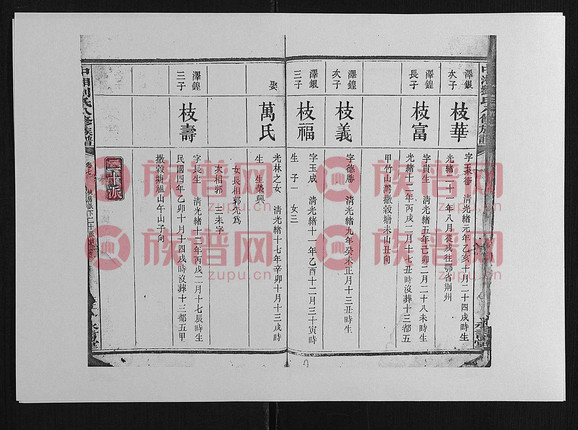 中湘劉氏八修族譜
澤鍠
次子
枝華
光緒二十一年八月復戌往鄂省荆州
澤鍠
長子
枝富
字貴生 清光緒五年己卯二月二十八未時生
光緒十二年丙戌二月二十七丑時沒葬十三都五
甲竹山灣撒穀塘未山丑向
澤鍠
次子
枝義
字德勝 清光緒九年癸未正月十三丑時生
澤銀
三子
枝福
字玉成 清光緒十一年乙酉十二月三十寅時
生 子一 女三
娶
萬氏
光林之女 清光緒十七年辛卯十月十三戌時
生 生藥興
女長相郭久篤
次相郭 三未字
澤鍠
三子
枝壽
字長生 清光緒十二年丙戌二月十七辰時生
民國四年乙卯十月十四戌時沒葬十三都五甲
撒穀塘艇山午山子向
二十派
中湘劉氏八修族譜
族譜网
zupu.cn